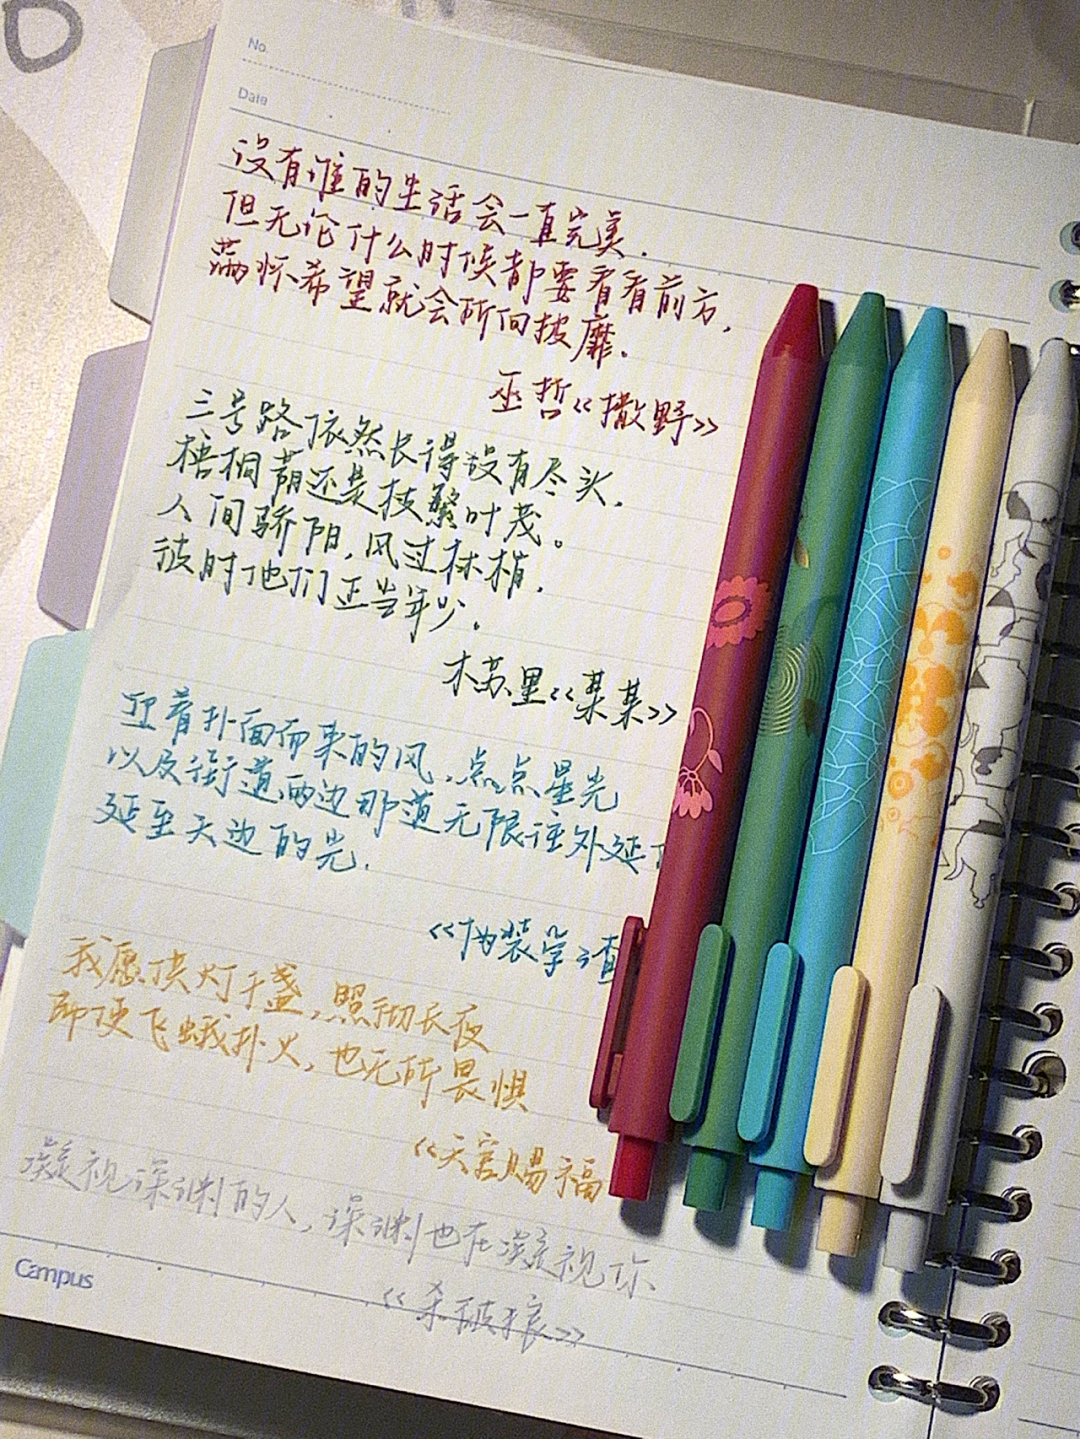 No.
Date
没有谁的生活会一直完美.
但无论什么时候都要看看前方,
满怀希望就会所向披靡.
巫哲《撒野》
三号路依然长得没有尽头,
梧桐荫还是枝繁叶茂。
人间骄阳,风过林梢,
彼时他们正当年少。
木苏里《某某》
迎着扑面而来的风,点点星光
以及街道两边那道无限往外延
延至天边的光.
《伪装学渣
我愿供灯千盏,照彻长夜
即使飞蛾扑火,也无所畏惧
《天官赐福
凝视深渊的人,深渊也在凝视你
《杀破狼》
Campus